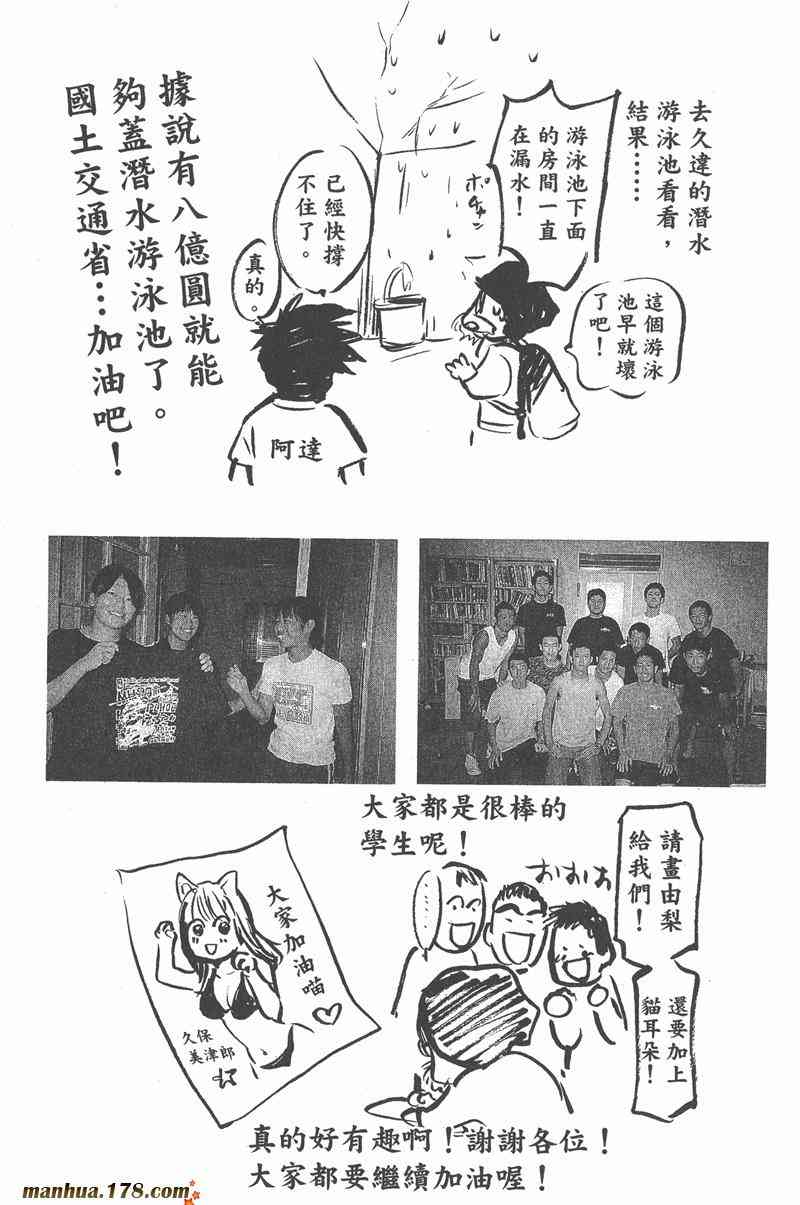 去久違的潛水
游泳池看看，
結果……
游泳池下面
的房間一直
在漏水！
這個游泳
池早就壞
了吧！
ポチャン
已經快撐
不住了。
真的。
阿達
據說有八億圓就能
夠蓋潛水游泳池了。
國土交通省…加油吧！
大家都是很棒的
學生呢！
請畫由梨
給我們！
還要加上
貓耳朵！
おおおお
……
大家加油喵
久保
美津郎
真的好有趣啊！謝謝各位！
大家都要繼續加油喔！
manhua.178.com